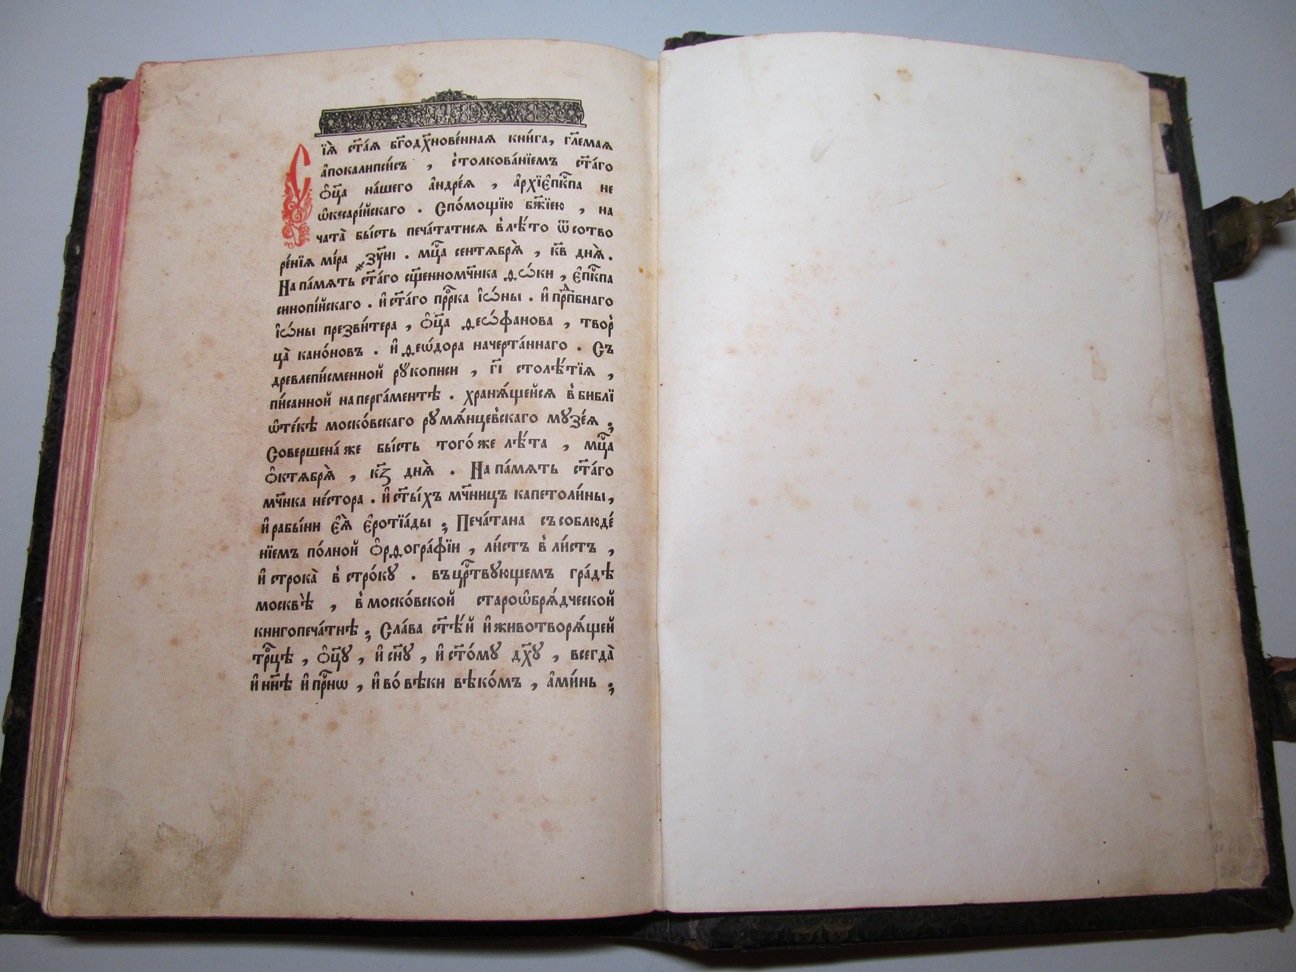 Сїѧ҄ ст҃аѧ бг҃одх҃нове́ннаѧ кни́га, гл҃емаѧ
а҆покалипси́съ , с̾толкова́нїемъ ст҃а́го
ѻ҆ц҃а на́шего а҆ндре́ѧ , а҆рхїепⷭ҇кпа не
ѡ҆кеса́рїйскаго . Спо́мощїю бж҃їею , на
чата̀ бы́сть печа́татисѧ в̾лѣ́то ѿ сотво
ре́нїѧ мі́ра ҂зу҃ні . мцⷭ҇а сентѧбрѧ̀ , кв҃ днѧ̀ .
На па́мѧть ст҃а́го сщ҃енномч҃ника ѳѡ́ки , є҆пⷭ҇кпа
синопі́йскаго . и҆ ст҃а́го прⷪ҇рка і҆ѡ́ны . и҆ прпⷣбнаго
і҆ѡ́ны презви́тера , ѻ҆ц҃а ѳеѡ́фанова , твор
ца̀ кано́новъ . и҆ ѳеѡ́дора начерта́ннаго . Съ
древлепи́сменной рꙋ́кописи , гі҃ столѣ́тїѧ ,
пи́санной на перга́ментѣ . хранѧ́щейсѧ в̾ библї
ѡ҆те́кѣ моско́вскаго рꙋмѧ́нцевскаго мꙋзе́ѧ ;
Соверше́на же бы́сть того́ же лѣ́та , мцⷭ҇а
ѻ҆ктѧбрѧ̀ , кз҃ днѧ̀ . На па́мѧть ст҃а́го
мч҃ника не́стора . и҆ ст҃ы́хъ мч҃ницъ капетоли́ны,
и҆ рабы́ни є҆ѧ̀ є҆роті́ады ; Печа́тана съ соблюде́
нїемъ по́лной ѻ҆рѳогра́фїи , ли́стъ в̾ ли́стъ ,
и҆ строка̀ в̾ стро́кꙋ . въ црⷭ҇твꙋющемъ гра́дѣ
москвѣ̀ , в̾ моско́вской староѡбрѧ́дческой
книгопеча́тнѣ ; Сла́ва ст҃ѣ́й и҆ животворѧ́щей
трⷪ҇цѣ , ѻ҆ц҃ꙋ , и҆ сн҃ꙋ , и҆ ст҃о́мꙋ дх҃ꙋ , всегда̀
и҆ нн҃ѣ и҆ прⷭ҇нѡ , и҆ во́ вѣки вѣко́мъ , а҆ми́нь ;